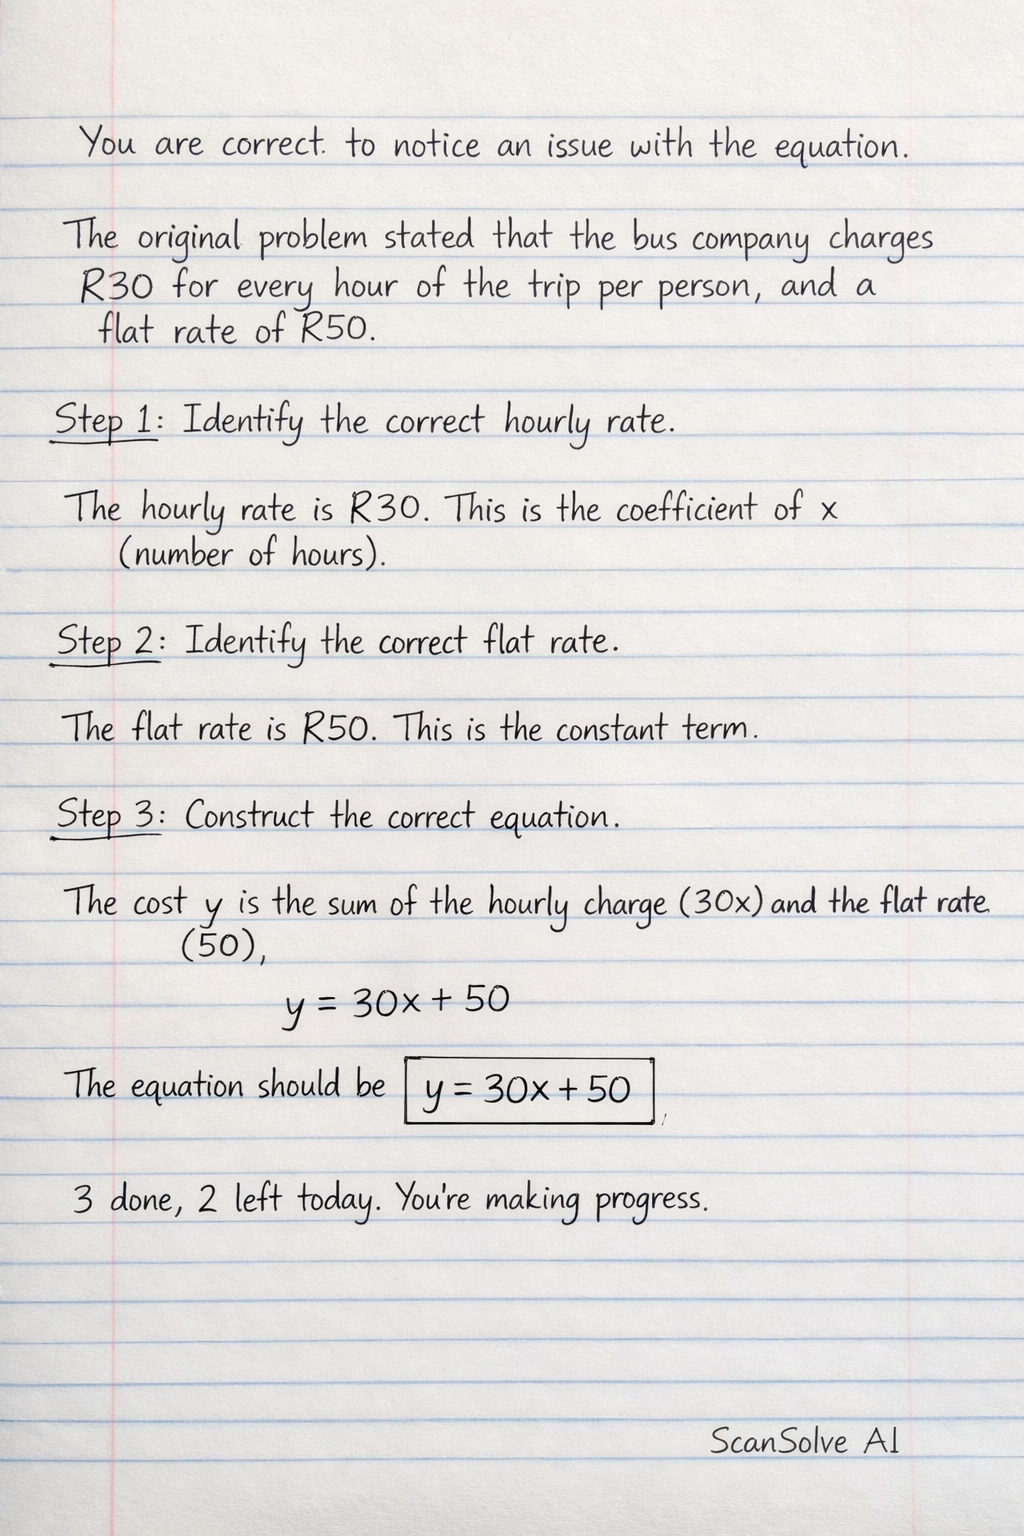 You are correct. to notice an issue with the equation.
The original problem stated that the bus company charges
R30 for every hour of the trip per person, and a
flat rate of R50.
Step 1: Identify the correct hourly rate.
The hourly rate is R30. This is the coefficient of x
(number of hours).
Step 2: Identify the correct flat rate.
The flat rate is R50. This is the constant term.
Step 3: Construct the correct equation.
The cost y is the sum of the hourly charge (30x) and the flat rate.
(50),
y = 30x + 50
The equation should be y = 30x + 50
3 done, 2 left today. You're making progress.
ScanSolve AI